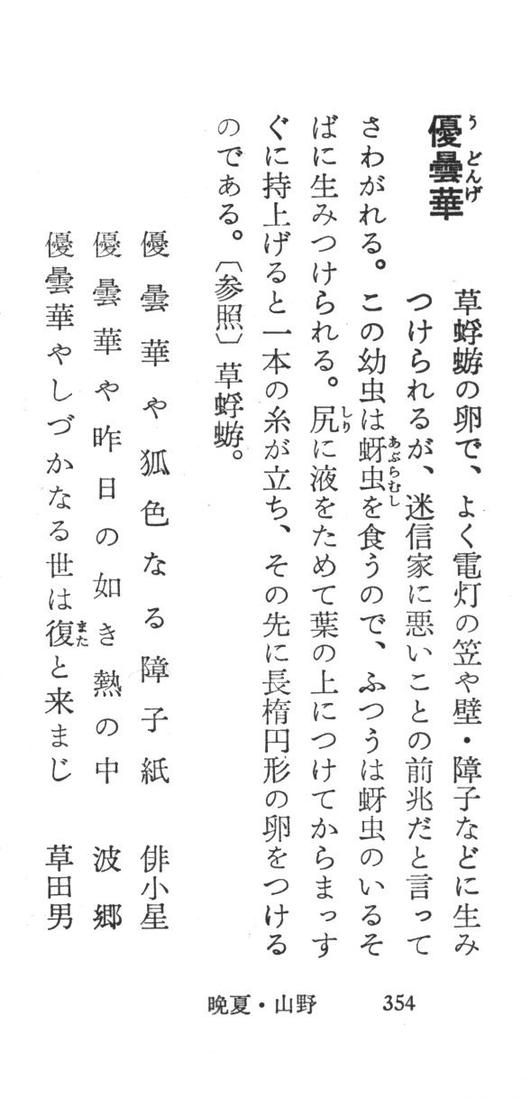 優曇華
うどんげ
草蜉蝣の卵で、よく電灯の笠や壁・障子などに生み
つけられるが、迷信家に悪いことの前兆だと言って
さわがれる。この幼虫は蚜虫を食うので、ふつうは蚜虫のいるそ
あぶらむし
ばに生みつけられる。尻に液をためて葉の上につけてからまっす
しり
ぐに持上げると一本の糸が立ち、その先に長楕円形の卵をつける
のである。〔参照〕草蜉蝣。
優曇華や狐色なる障子紙 俳小星
優曇華や昨日の如き熱の中 波郷
優曇華やしづかなる世は復と来まじ 草田男
また
晩夏・山野 354